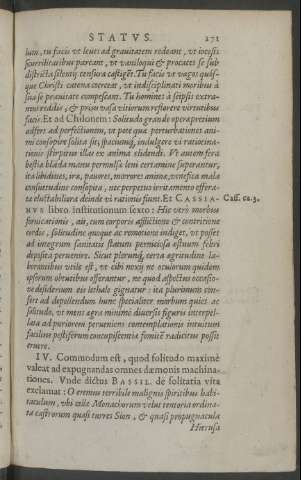 STATVS. 271
ium, tu facis vt leues ad grauitatem redeant, vt iocosi
scurrilitatibus parcant, vt vaniloqui & procaces se sub
districta silentij censura castigēt. Tu facis vt vagos quis-
que Christi catena coerceat, vt indisciplinati moribus à
sua se prauitate compescant. Tu homines à seipsis extra-
neos reddis, & prius vasa vitiorum refertos virtutibus
facis. Et ad Chilonem: Solitudo grande opera pretium
adfert ad perfectionem, vt pote quæ perturbationes ani-
mi consopire solita sit, spatiumq́; indulgere vt ratiocina-
tionis stirpitus illæ ex anima elidendi. Vt autem feræ
bestiæ blāda manu permulsæ leni certamine superantur,
ita libidines, iræ, pauores, mœrores animæ, venefica mala
consuetudine consopita, nec perpetuo irritamento effera-
ta eluctabiliora deinde vi rationis fiunt. Et CASSIA- Cass. ca. 3.
NVS libro institutionum sexto: Hic verò morbus
fornicationis, ait, cum corporis afflictione & contritione
cordis, solitudine quoque ac remotione indiget, vt posset
ad integrum sanitatis statum perniciosa æstuum febri
deposita peruenire. Sicut plerunq́; certa ægritudine la-
borantibus vtile est, vt cibi noxij ne oculorum quidem
ipsorum obtutibus offerantur, ne quod aspectus occasio-
ne desiderium eis lethale gignatur: ita plurimum con-
fert ad depellendum hunc specialiter morbum quies ac
solitudo, vt mens ægra minimè diuersis figuris interpel-
lata ad puriorem perueniens contemplationis intuitum
facilius pestiferum concupiscentiæ fomitē radicitus possit
eruere.
IV. Commodum est, quod solitudo maximè
valeat ad expugnandas omnes dæmonis machina-
tiones. Vnde dictus BASSIL. de solitaria vita
exclamat: O eremus terribile malignis spiritibus habi-
taculum, vbi cellæ Monachorum velut tentoria ordina-
ta castrorum quasi turres Sion, & quasi propugnacula
Hierusa